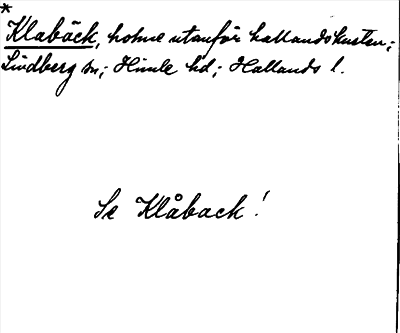 *
Klabäck, holme utanför hallandskusten;
Lindberg sn; Himle hd; Hallands l.
Se Klåback!